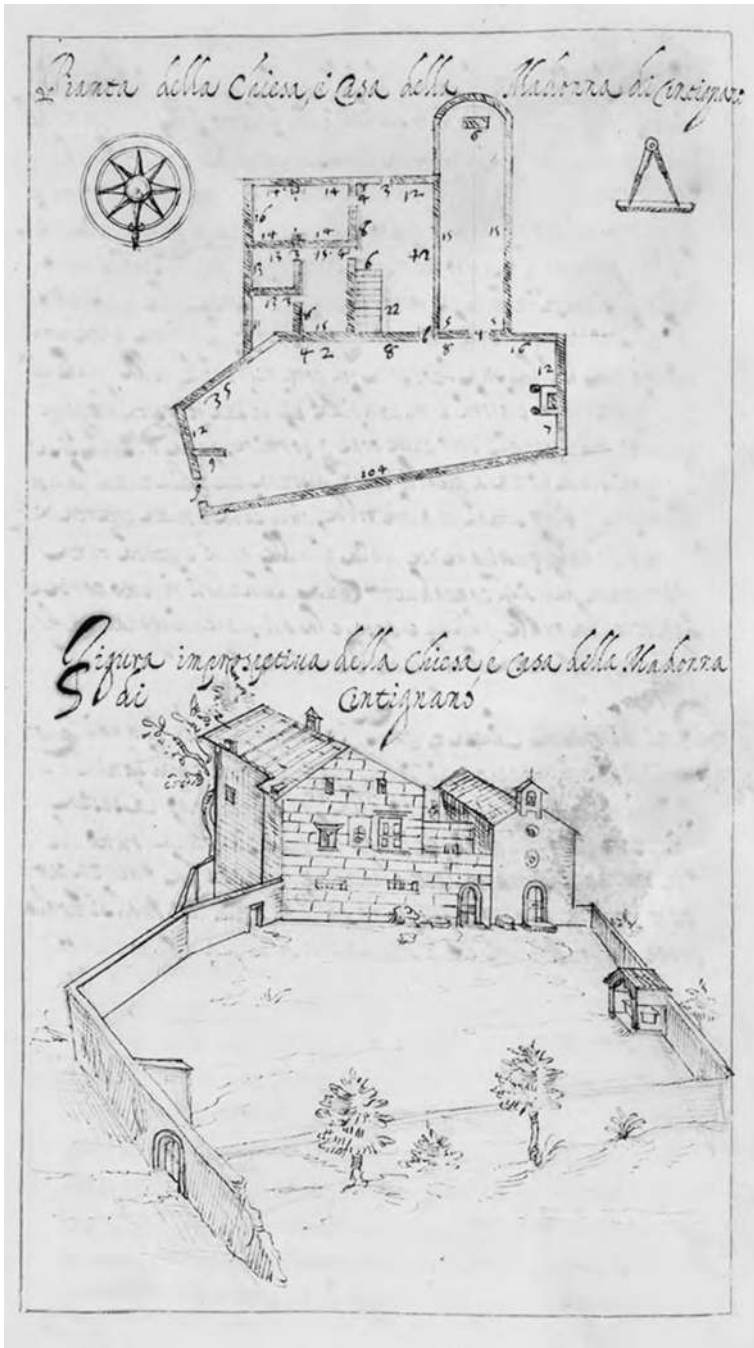 Pianta della Chiesa, è Casa della Madonna di Cintignano
6
14 14 4 3 12
16 8
14 14 15 15
13 15 4 42
13 6
13 3 22
15 5 5
4 2 8 6 8 4 16
12
35
12 7
9
104
Figura improspetiua della Chiesa, e Casa della Madonna
di Cintignano